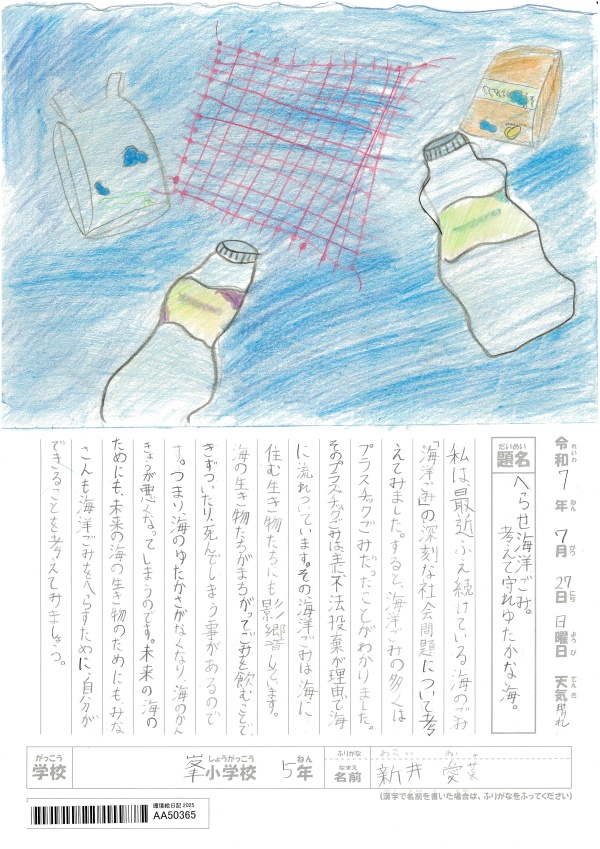 令和7年7月27日日曜日 天気 晴れ
題名 へらせ海洋ごみ。
考えて守れゆたかな海。
私は最近ふえ続けている海のごみ
「海洋ごみ」の深刻な社会問題について考
えてみました。すると、海洋ごみの多くは
プラスチックごみだったことがわかりました。
そのプラスチックごみは主に不法投棄が理由で海
に流れついています。その海洋ごみは海に
住む生き物たちにも影響しています。
海の生き物たちがまちがってごみを飲むことで
きずついたり、死んでしまう事があるので
す。つまり、海のゆたかさがなくなり、海のかん
きょうが悪くなってしまうのです。未来の海の
ためにも、未来の海の生き物のためにも、みな
さんも海洋ごみをへらすために、自分が
できることを考えてみましょう。
学校 峯小学校 5年
名前 新井 愛菜
(漢字で名前を書いた場合は、ふりがなをふってください)
環境絵日記 2025
AA50365